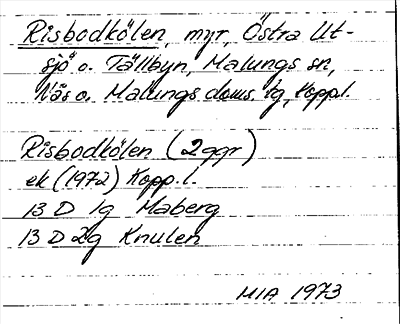 Risbodkölen, myr, Östra Ut-
sjö o. Tällbyn, Malungs sn,
Näs o. Malungs doms. lg, Kopp.l.
Risbodkölen (2 ggr)
ek (1972) Kopp.l.
13 D 1g Maberg
13 D 2g Knulen
MIA 1973